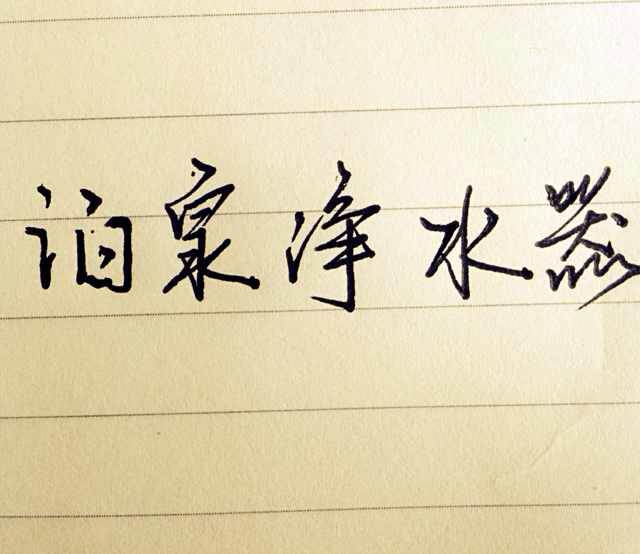 泊泉净水器